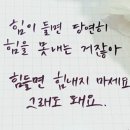 힘이 들면 당연히
힘을 못내는 거잖아
힘들면 힘내지 마세요
그래도 돼요..